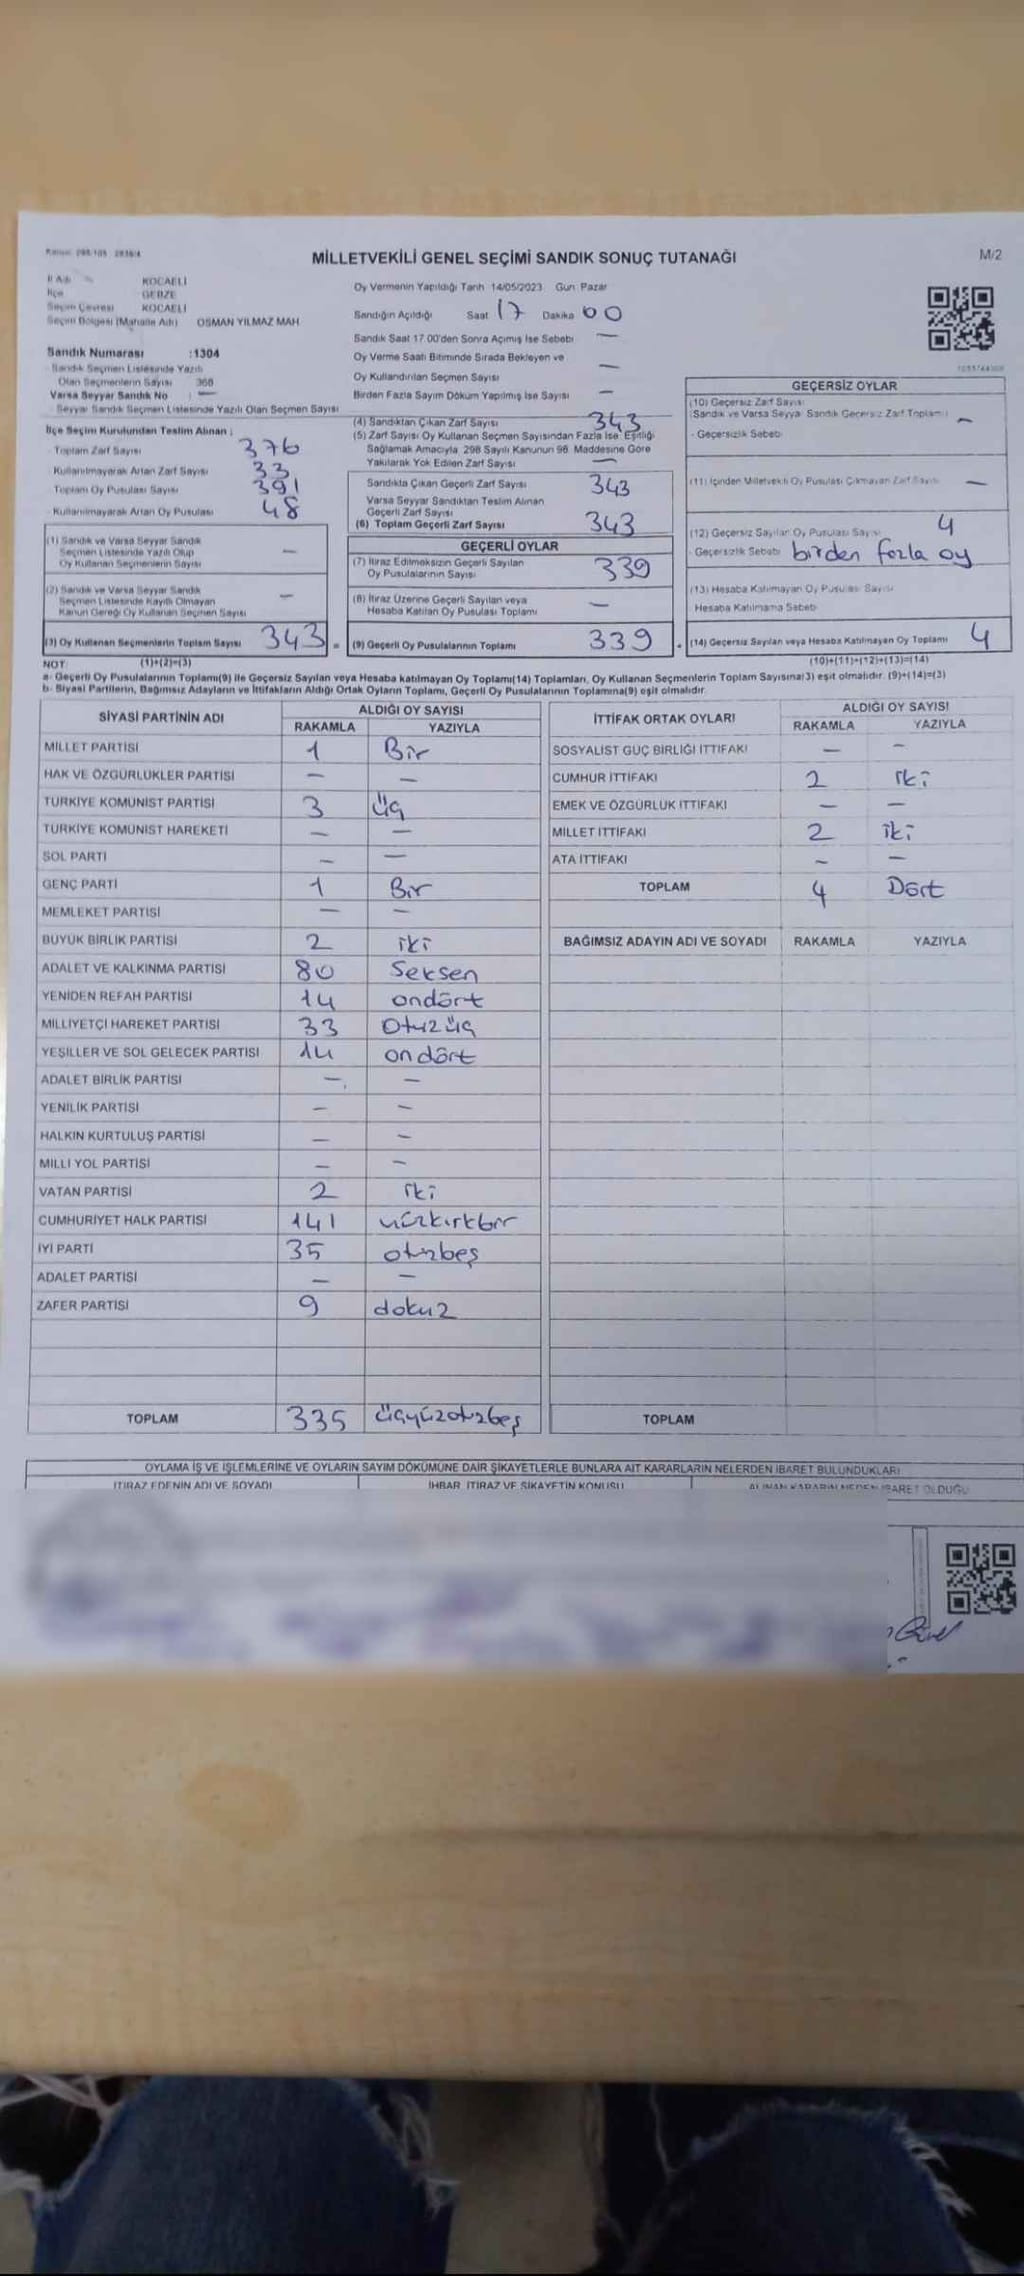 MİLLETVEKİLİ GENEL SEÇİMİ SANDIK SONUÇ TUTANAĞI
M/2
İl Adı KOCAELİ
İlçe GEBZE
Seçim Çevresi KOCAELİ
Seçim Bölgesi (Mahalle Adı) OSMAN YILMAZ MAH
Sandık Numarası :1304
Sandık Seçmen Listesinde Yazılı
Olan Seçmenlerin Sayısı 368
Varsa Seyyar Sandık No —
Seyyar Sandık Seçmen Listesinde Yazılı Olan Seçmen Sayısı
İlçe Seçim Kurulundan Teslim Alınan ;
- Toplam Zarf Sayısı 376
- Kullanılmayarak Artan Zarf Sayısı 33
- Toplam Oy Pusulası Sayısı 391
- Kullanılmayarak Artan Oy Pusulası 48
(1) Sandık ve Varsa Seyyar Sandık
Seçmen Listesinde Yazılı Olup
Oy Kullanan Seçmenlerin Sayısı —
(2) Sandık ve Varsa Seyyar Sandık
Seçmen Listesinde Kayıtlı Olmayan
Kanun Gereği Oy Kullanan Seçmen Sayısı —
(3) Oy Kullanan Seçmenlerin Toplam Sayısı 343 =
Oy Vermenin Yapıldığı Tarih 14/05/2023 Gün Pazar
Sandığın Açıldığı Saat 17 Dakika 00
Sandık Saat 17.00'den Sonra Açımış İse Sebebi —
Oy Verme Saati Bitiminde Sırada Bekleyen ve
Oy Kullandırılan Seçmen Sayısı —
Birden Fazla Sayım Döküm Yapılmış İse Sayısı —
(4) Sandıktan Çıkan Zarf Sayısı 343
(5) Zarf Sayısı Oy Kullanan Seçmen Sayısından Fazla İse Eşitliği
Sağlamak Amacıyla 298 Sayılı Kanunun 98. Maddesine Göre
Yakılarak Yok Edilen Zarf Sayısı —
Sandıkta Çıkan Geçerli Zarf Sayısı 343
Varsa Seyyar Sandıktan Teslim Alınan
Geçerli Zarf Sayısı
(6) Toplam Geçerli Zarf Sayısı 343
GEÇERLİ OYLAR
(7) İtiraz Edilmeksizin Geçerli Sayılan
Oy Pusulalarının Sayısı 339
(8) İtiraz Üzerine Geçerli Sayılan veya
Hesaba Katılan Oy Pusulası Toplamı —
(9) Geçerli Oy Pusulalarının Toplamı 339
GEÇERSİZ OYLAR
(10) Geçersiz Zarf Sayısı
(Sandık ve Varsa Seyyar Sandık Geçersiz Zarf Toplamı) —
- Geçersizlik Sebebi
(11) İçinden Milletvekili Oy Pusulası Çıkmayan Zarf Sayısı —
(12) Geçersiz Sayılan Oy Pusulası Sayısı 4
- Geçersizlik Sebebi birden fazla oy
(13) Hesaba Katılmayan Oy Pusulası Sayısı
Hesaba Katılmama Sebebi
(14) Geçersiz Sayılan veya Hesaba Katılmayan Oy Toplamı 4
NOT: (1)+(2)=(3) (10)+(11)+(12)+(13)=(14)
a- Geçerli Oy Pusulalarının Toplamı(9) ile Geçersiz Sayılan veya Hesaba katılmayan Oy Toplamı(14) Toplamları, Oy Kullanan Seçmenlerin Toplam Sayısına(3) eşit olmalıdır. (9)+(14)=(3)
b- Siyasi Partilerin, Bağımsız Adayların ve İttifakların Aldığı Ortak Oyların Toplamı, Geçerli Oy Pusulalarının Toplamına(9) eşit olmalıdır.
SİYASİ PARTİNİN ADI ALDIĞI OY SAYISI
RAKAMLA YAZIYLA
MİLLET PARTİSİ 1 Bir
HAK VE ÖZGÜRLÜKLER PARTİSİ — —
TÜRKİYE KOMÜNİST PARTİSİ 3 üç
TÜRKİYE KOMÜNİST HAREKETİ — —
SOL PARTİ — —
GENÇ PARTİ 1 Bir
MEMLEKET PARTİSİ — —
BÜYÜK BİRLİK PARTİSİ 2 iki
ADALET VE KALKINMA PARTİSİ 80 Seksen
YENİDEN REFAH PARTİSİ 14 ondört
MİLLİYETÇİ HAREKET PARTİSİ 33 Otuzüç
YEŞİLLER VE SOL GELECEK PARTİSİ 14 ondört
ADALET BİRLİK PARTİSİ — —
YENİLİK PARTİSİ — —
HALKIN KURTULUŞ PARTİSİ — —
MİLLİ YOL PARTİSİ — —
VATAN PARTİSİ 2 iki
CUMHURİYET HALK PARTİSİ 141 yüzkırkbir
İYİ PARTİ 35 otuzbeş
ADALET PARTİSİ — —
ZAFER PARTİSİ 9 dokuz
TOPLAM 335 üçyüzotuzbeş
İTTİFAK ORTAK OYLARI ALDIĞI OY SAYISI
RAKAMLA YAZIYLA
SOSYALİST GÜÇ BİRLİĞİ İTTİFAKI — —
CUMHUR İTTİFAKI 2 iki
EMEK VE ÖZGÜRLÜK İTTİFAKI — —
MİLLET İTTİFAKI 2 iki
ATA İTTİFAKI — —
TOPLAM 4 Dört
BAĞIMSIZ ADAYIN ADI VE SOYADI RAKAMLA YAZIYLA
TOPLAM
OYLAMA İŞ VE İŞLEMLERİNE VE OYLARIN SAYIM DÖKÜMÜNE DAİR ŞİKAYETLERLE BUNLARA AİT KARARLARIN NELERDEN İBARET BULUNDUKLARI
İTİRAZ EDENİN ADI VE SOYADI İHBAR, İTİRAZ VE ŞİKAYETİN KONUSU ALINAN KARARIN NEDEN İBARET OLDUĞU